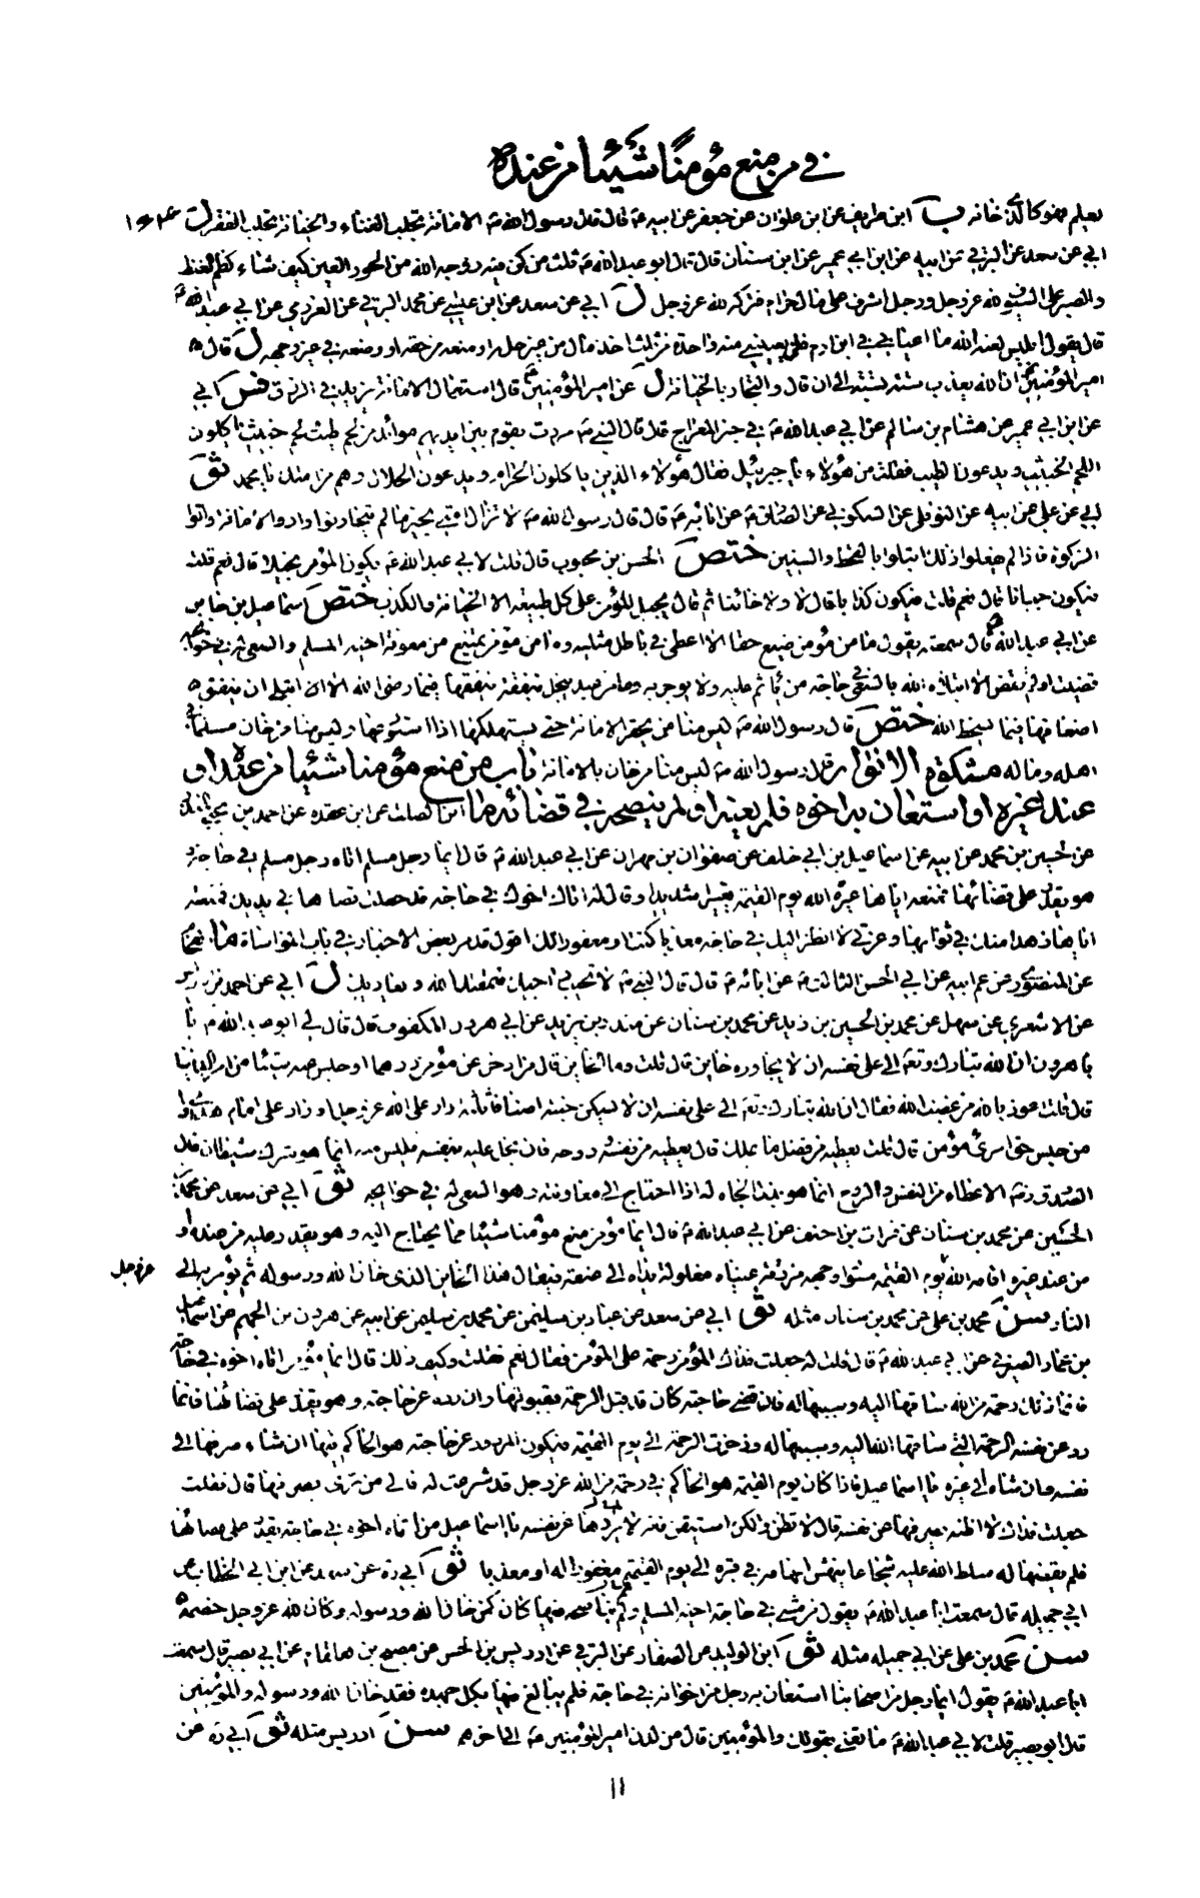 في من منع مؤمنا شيئا من عنده
يعلم فهو كالذي خانه ب ابن طريف عن ابن علوان عن جعفر عن ابيه ع قال قال رسول الله ص الامانة تجلب الغناء والخيانة تجلب الفقر ل
ابي عن سعد عن البرقي عن ابيه عن ابن ابي عمير عن ابن سنان قال قال ابو عبد الله ع ثلث من كن فيه زوجه الله من الحور العين كيف شاء كظم الغيظ
والصبر على السيوف لله عز وجل ورجل اشرف على مال حرام فتركه لله عز وجل ل ابي عن سعد عن ابن عيسى عن محمد البرقي عن العزرمي عن ابي عبد الله ع
قال يقول ابليس لعنه الله ما اعياني في ابن ادم فلن يعييني منه واحدة من ثلث اخذ مال من غير حله او منعه من حقه او وضعه في غير وجهه ل قال
امير المؤمنين ع ان الله يعذب ستة بستة الى ان قال والتجار بالخيانة ل عن امير المؤمنين ع قال استعمال الامانة يزيد في الرزق فس ابي
عن ابن ابي عمير عن هشام بن سالم عن ابي عبد الله ع في خبر المعراج قال قال النبي ص مررت بقوم بين ايديهم موائد من لحم طيب ولحم خبيث ياكلون
اللحم الخبيث ويدعون الطيب فقلت من هؤلاء يا جبرئيل فقال هؤلاء الذين ياكلون الحرام ويدعون الحلال وهم من امتك يا محمد ثو
ابي عن علي عن ابيه عن النوفلي عن السكوني عن الصادق ع عن ابائه ع قال قال رسول الله ص لا تزال امتي بخير ما لم يتخاونوا وادوا الامانة واتوا
الزكوة فاذا لم يفعلوا ذلك ابتلوا بالقحط والسنين ختص الحسن بن محبوب قال قلت لابي عبد الله ع يكون المؤمن بخيلا قال نعم قلت
فيكون جبانا قال نعم قلت فيكون كذابا قال لا ولا خائنا ثم قال يجبل المؤمن على كل طبيعة الا الخيانة والكذب ختص اسماعيل بن جابر
عن ابي عبد الله ع قال سمعته يقول ما من مؤمن ضيع حقا الا اعطى في باطل مثليه وما من مؤمن يمتنع من معونة اخيه المسلم والسعي له في حوائجه
قضيت او لم تقض الا ابتلاه الله بالسعي في حاجة من ياثم عليه ولا يوجر به وما من عبد يبخل بنفقة ينفقها فيما رضي الله الا ابتلي ان ينفق
اضعافها فيما يسخط الله ختص قال رسول الله ص ليس منا من يحقر الامانة حتى يستهلكها اذا استودعها وليس منا من خان مسلما في
اهله وماله مشكوة الانوار قال رسول الله ص ليس منا من خان بالامانة باب من منع مؤمنا شيئا من عنده او
عند غيره او استعان به اخوه فلم يعنه او لم ينصحه في قضائه ما ابن الصلت عن ابن عقدة عن احمد بن يحيى
عن الحسين بن محمد عن ابيه عن اسماعيل بن ابي خلف عن صفوان بن مهران عن ابي عبد الله ع قال ايما رجل مسلم اتاه رجل مسلم في حاجة و
هو يقدر على قضائها فمنعه اياها عيره الله يوم القيمة تعييرا شديدا وقال له اتاك اخوك في حاجة قد جعلت قضاها في يديك فمنعته
اياها زهدا منك في ثوابها وعزتي لا انظر اليك في حاجة معذبا كنت او مغفورا لك اقول قد مر بعض الاخبار في باب المواساة ما الفحام
عن المنصوري عن عم ابيه عن ابي الحسن الثالث ع عن ابائه ع قال قال النبي ص لا تخيب راجيك فيمقتك الله ويعاديك ل ابي عن احمد بن ادريس
عن الاشعري عن سهل عن محمد بن الحسين بن زيد عن محمد بن سنان عن منذر بن يزيد عن ابي هرون المكفوف قال قال لي ابو عبد الله ع يا
با هرون ان الله تبارك وتعالى الى على نفسه ان لا يجاوره خاين قال قلت وما الخاين قال من ادخر عن مؤمن درهما او حبس عنه شيئا من امر الدنيا
قال قلت اعوذ بالله من غضب الله فقال ان الله تبارك وتعالى الى على نفسه ان لا يسكن جنته اصنافا ثلثة راد على الله عز وجل او راد على امام هدى او
من حبس حق امرئ مؤمن قال قلت يعطيه من فضل ما يملك قال يعطيه من نفسه وروحه فان بخل عليه بنفسه فليس منه انما هو شرك شيطان قال
الصدوق رحمه الله الاعطاء من النفس والروح انما هو بذل الجاه له اذا احتاج الى معاونته وهو السعي له في حوايجه ثو ابي عن سعد عن محمد بن
الحسين عن محمد بن سنان عن فرات بن احنف عن ابي عبد الله ع قال ايما مؤمن منع مؤمنا شيئا مما يحتاج اليه وهو يقدر عليه من عنده او
من عند غيره اقامه الله يوم القيمة مسودا وجهه مزرقة عيناه مغلولة يداه الى عنقه فيقال هذا الخاين الذي خان الله ورسوله ثم يؤمر به الى
النار سن محمد بن علي عن محمد بن سنان مثله ثو ابي عن سعد عن عباد بن سليمن عن محمد بن سليمن عن ابيه عن هرون بن الجهم عن اسماعيل
بن عمار الصيرفي عن ابي عبد الله ع قال قلت له جعلت فداك المؤمن رحمة على المؤمن فقال نعم فقلت وكيف ذلك قال ايما مؤمن اتاه اخوه في حاجة
فانما ذلك رحمة من الله ساقها اليه وسببها له فان قضى حاجته كان قد قبل الرحمة بقبولها وان رده عن حاجته وهو يقدر على قضائها فانما
رد عن نفسه الرحمة التي ساقها الله اليه وسببها له وذخرت الرحمة الى يوم القيمة فيكون المردود عن حاجته هو الحاكم فيها ان شاء صرفها الى
نفسه وان شاء الى غيره يا اسماعيل فاذا كان يوم القيمة هو الحاكم في رحمة من الله عز وجل قد شرعت له فالى من ترى يصرفها قال فقلت
جعلت فداك لا اظنه يصرفها عن نفسه قال لا تظن ولكن استيقن فانه لا يردها عن نفسه يا اسماعيل من اتاه اخوه في حاجة يقدر على قضائها
فلم يقضها له سلط الله عليه شجاعا ينهش ابهامه في قبره الى يوم القيمة مغفورا له او معذبا ثو ابي ره عن سعد عن ابن ابي الخطاب عن
ابي جميله قال سمعت ابا عبد الله ع يقول من مشى في حاجة اخيه المسلم ولم يناصحه فيها كان كمن خان الله ورسوله وكان الله عز وجل خصمه
سن محمد بن علي عن ابي جميله مثله ثو ابن الوليد عن الصفار عن البرقي عن ادريس بن الحسن عن مصبح بن هلقام عن ابي بصير قال سمعت
ابا عبد الله ع يقول ايما رجل من اصحابنا استعان به رجل من اخوانه في حاجة فلم يبالغ فيها بكل جهده فقد خان الله ورسوله والمؤمنين
قال ابو بصير قلت لابي عبد الله ع ما تعني بقولك والمؤمنين قال من لدن امير المؤمنين ع الى اخرهم سن ادريس مثله ثو ابي ره عن
عز وجل
١١